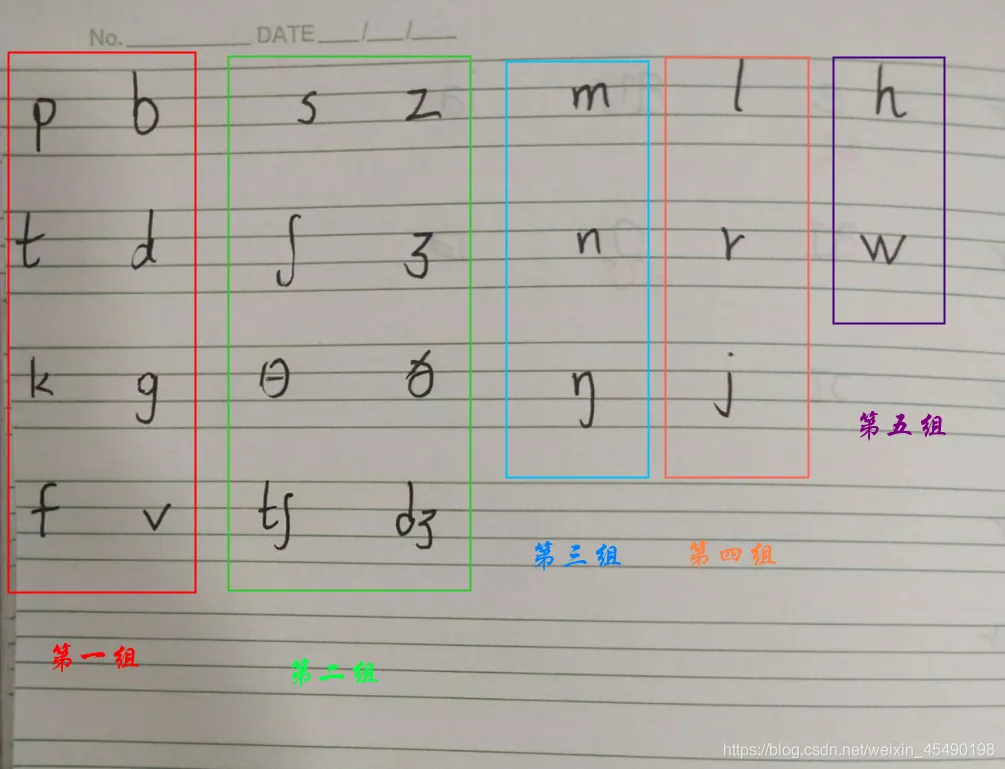 No. DATE / /
p b s z m l h
t d ʃ ʒ n r w
k g θ ð ŋ j
第五组
f v tʃ dʒ
第三组 第四组
第一组 第二组
https://blog.csdn.net/weixin_45490198